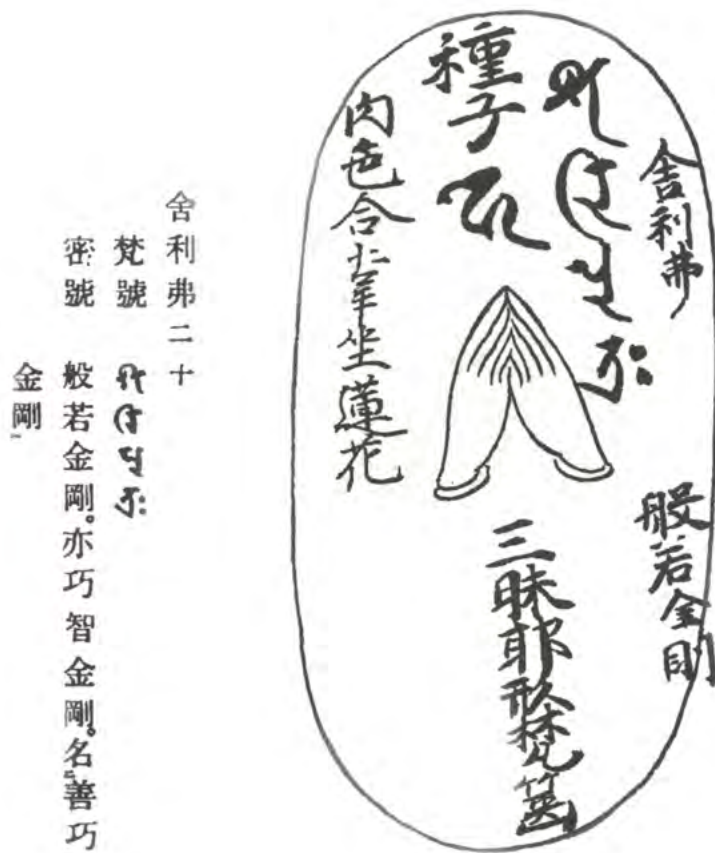 舍利弗
般若金剛
種子
三昧耶形梵篋
肉色合掌坐蓮花
舍利弗二十
梵號
密號 般若金剛。亦巧智金剛。名㆓善巧
金剛㆒